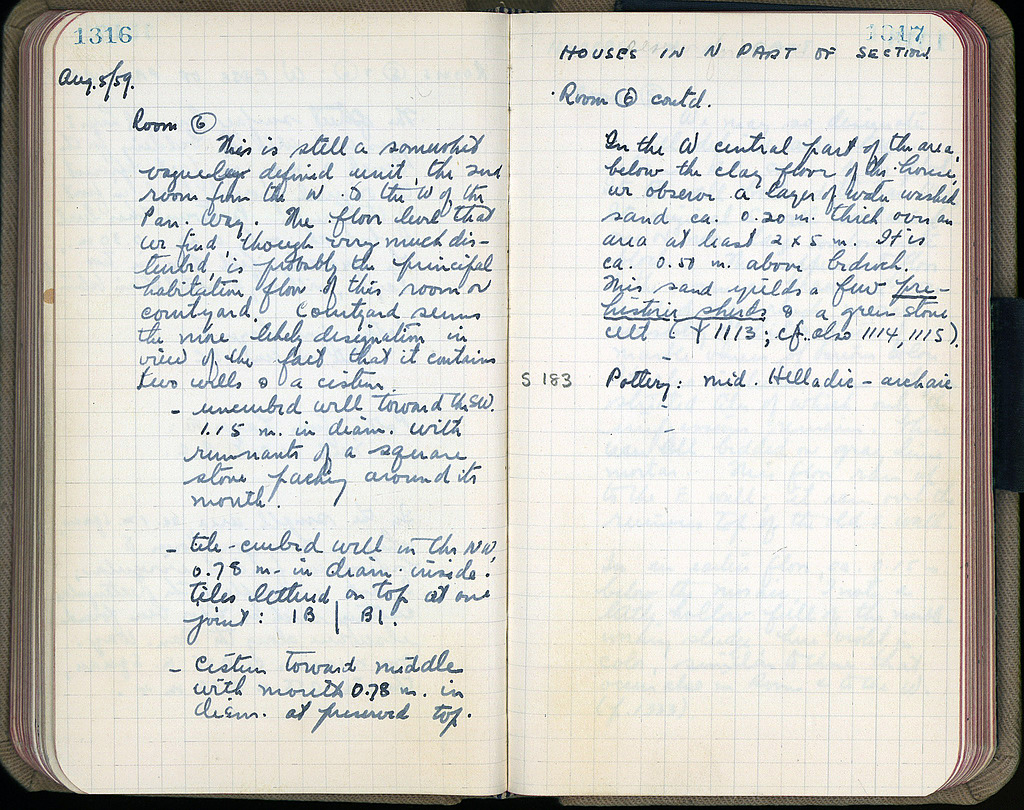 1316
Aug. 5/59.
Room ⑥
This is still a somewhat
vagueley defined unit, the 2nd
room from the N. to the W of the
Pan. Way. The floor level that
we find, though very much dis-
turbed, is probably the principal
habitation floor of this room or
courtyard. Courtyard seems
the more likely designation in
view of the fact that it contains
two wells & a cistern.
- uncurbed well toward the SW.
1.15 m. in diam. with
remnants of a square
stone packing around its
mouth.
- tile-curbed well in the NW,
0.78 m. in diam. inside.
tiles lettered on top at one
joint: 1B | B1.
- Cistern toward middle
with mouth 0.78 m. in
diam. at preserved top.
1317
HOUSES IN N PART OF SECTION
Room ⑥ contd.
In the W central part of the area,
below the clay floor of the house,
we observe a layer of water washed
sand ca. 0.20 m. thick over an
area at least 2 x 5 m. It is
ca. 0.50 m. above bedrock.
This sand yields a few pre-
historic sherds & a green stone
celt ( 1113; cf. also 1114, 1115).
-
S 183 Pottery: mid. Helladic - archaic
-
-